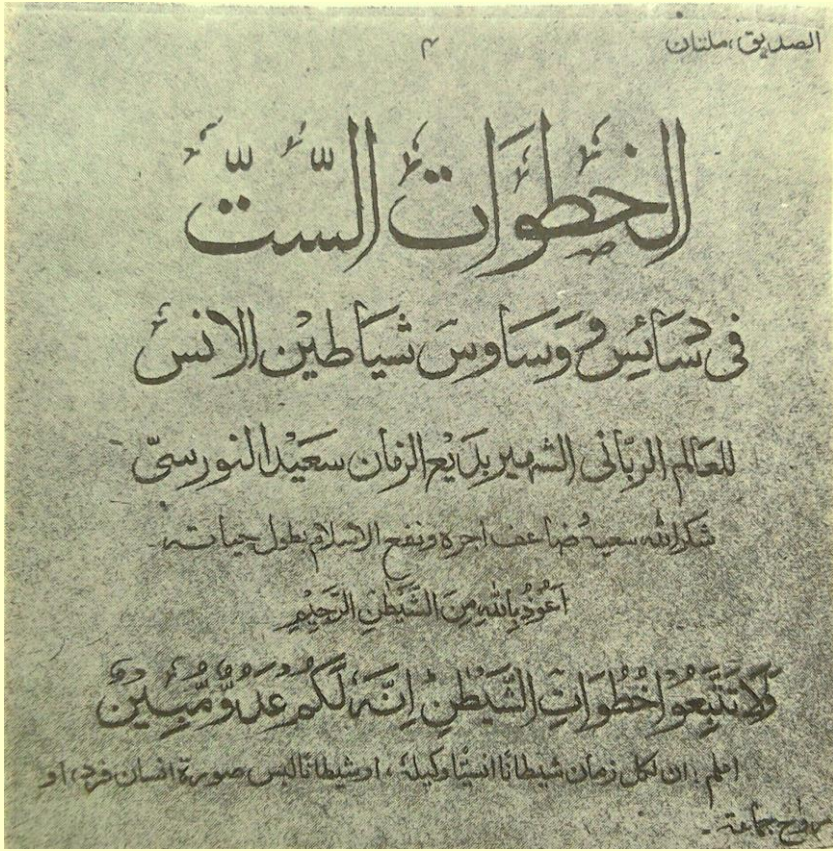 الصديق، ملتان
۴
الخطوات الستّ
فى دسَائِس وَسَاوسَ شيَاطيْن الانس
للعَالم الربّانى الشهير بدَيع الزمان سعَيْد النورسىّ
شكر الله سعيهُ ضاعف اجره ونفع الاسلام بطول حياته
اَعُوْذُ بِاللهِ مِنَ الشَّيْطٰنِ الرَّجِيْمِ
وَلَا تَتَّبِعُوْا خُطُوَاتِ الشَّيْطٰنِ اِنَّهٗ لَكُمْ عَدُوٌّ مُّبِيْنٌ
اعلم: ان لكل زمان شيطانًا انسيًا وكيله، او شيطانا لبس صورة انسان فرد، او
جماعة۔